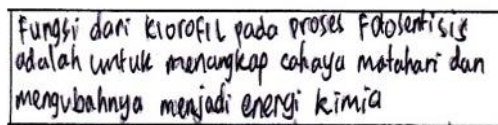 Fungsi dari klorofil pada proses Fotosentisis
adalah untuk menangkap cahaya matahari dan
mengubahnya menjadi energi kimia